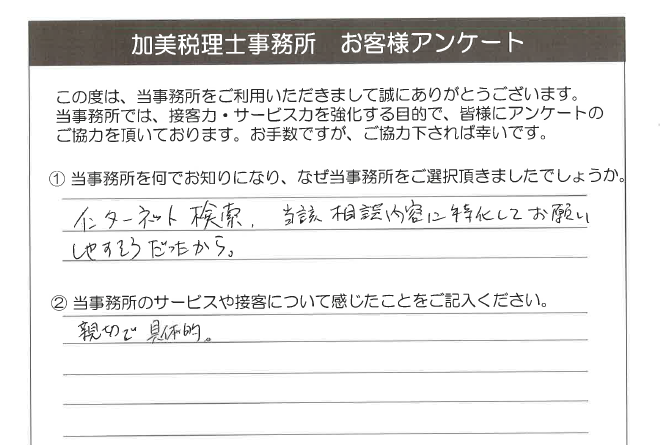 加美税理士事務所 お客様アンケート
この度は、当事務所をご利用いただきまして誠にありがとうございます。
当事務所では、接客力・サービス力を強化する目的で、皆様にアンケートの
ご協力を頂いております。お手数ですが、ご協力下されば幸いです。
① 当事務所を何でお知りになり、なぜ当事務所をご選択頂きましたでしょうか。
インターネット検索、当該相談内容に特化してお願い
しやすそうだったから。
② 当事務所のサービスや接客について感じたことをご記入ください。
親切で具体的。